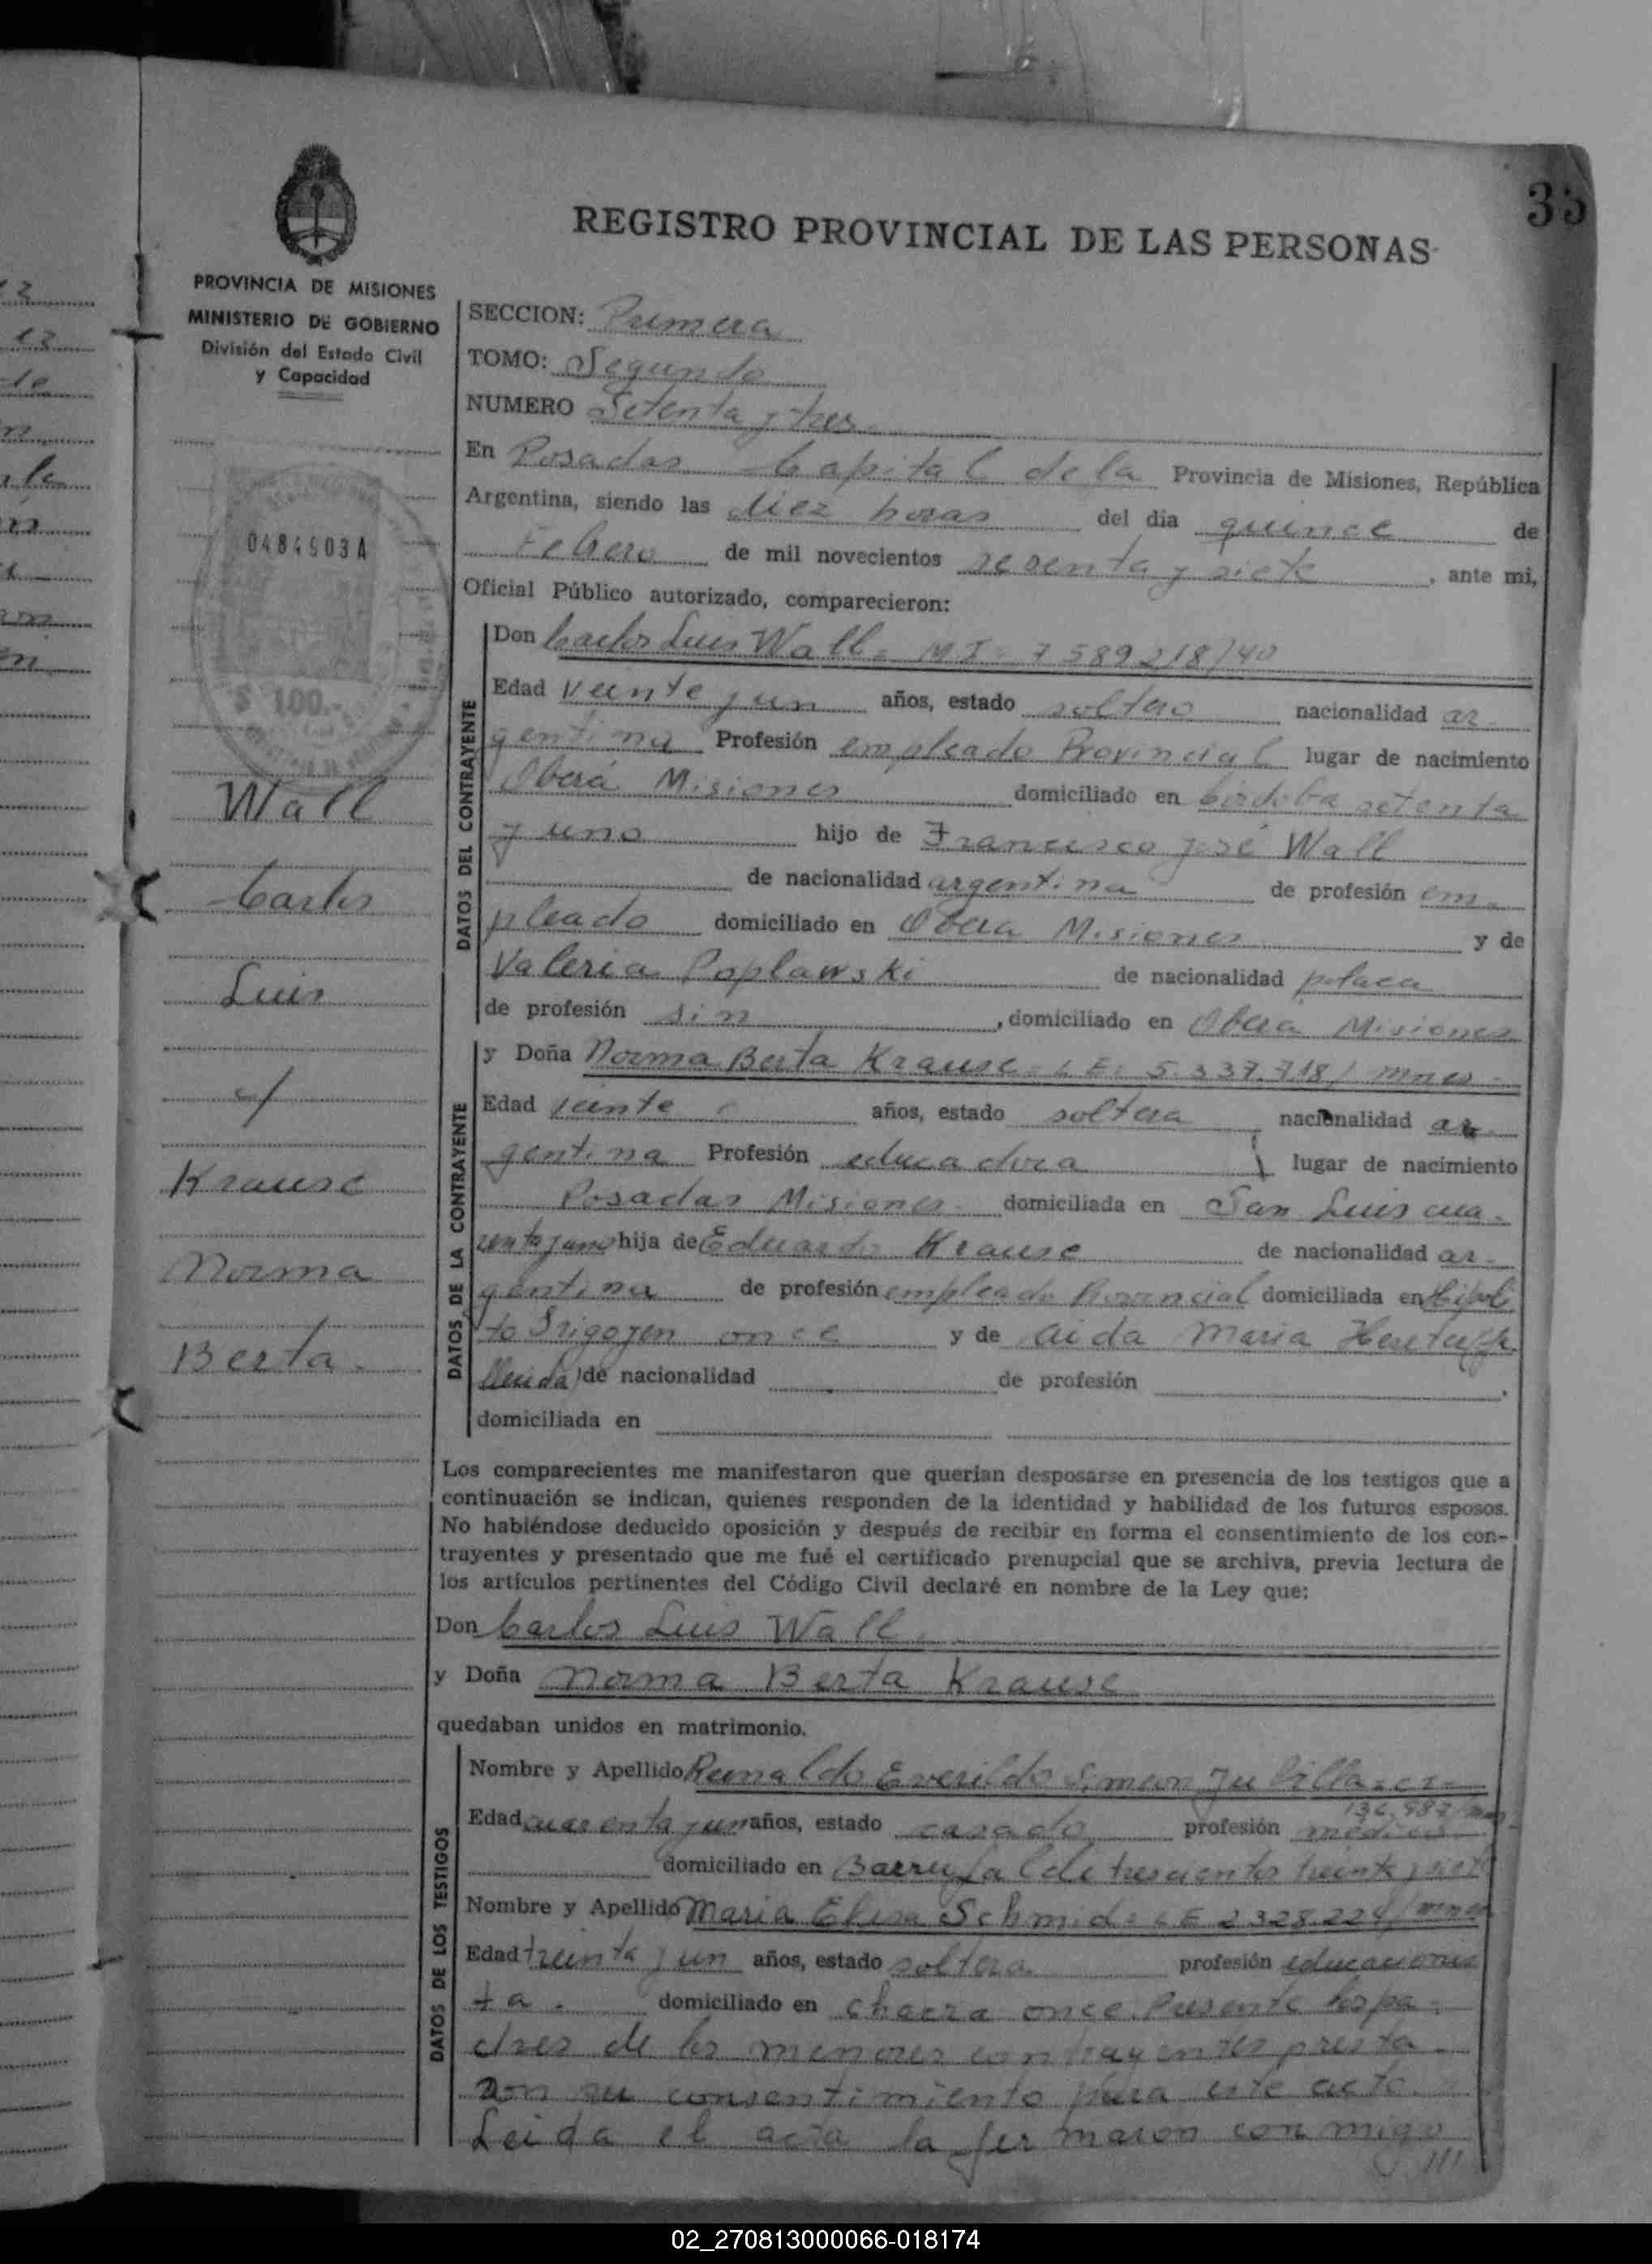 35
REGISTRO PROVINCIAL DE LAS PERSONAS
PROVINCIA DE MISIONES
MINISTERIO DE GOBIERNO
División del Estado Civil
y Capacidad
0484903A
$ 100.-
Wall
Carlos
Luis
c/
Krause
Norma
Berta.
SECCION: Primera
TOMO: Segundo
NUMERO Setenta y tres.
En Posadas Capital de la Provincia de Misiones, República
Argentina, siendo las diez horas del día quince de
Febrero de mil novecientos sesenta y siete, ante mi,
Oficial Público autorizado, comparecieron:
DATOS DEL CONTRAYENTE
Don Carlos Luis Wall. MI- 7589218/40
Edad veinte y un años, estado soltero nacionalidad ar-
gentina Profesión empleado Provincial lugar de nacimiento
Oberá Misiones domiciliado en Córdoba setenta
y uno hijo de Francisco José Wall
de nacionalidad argentina de profesión em-
pleado domiciliado en Obera Misiones y de
Valeria Poplawski de nacionalidad polaca
de profesión sin, domiciliado en Obera Misiones
DATOS DE LA CONTRAYENTE
y Doña Norma Berta Krause- LE: 5.337.718/ mnes-
Edad veinte años, estado soltera nacionalidad ar-
gentina Profesión educadora lugar de nacimiento
Posadas Misiones. domiciliada en San Luis cua-
renta y uno hija de Eduardo Krause de nacionalidad ar-
gentina de profesión empleado Provincial domiciliada en Hipoli
to Irigoyen once y de aida Maria
de nacionalidad de profesión
domiciliada en
Los comparecientes me manifestaron que querían desposarse en presencia de los testigos que a
continuación se indican, quienes responden de la identidad y habilidad de los futuros esposos.
No habiéndose deducido oposición y después de recibir en forma el consentimiento de los con-
trayentes y presentado que me fué el certificado prenupcial que se archiva, previa lectura de
los artículos pertinentes del Código Civil declaré en nombre de la Ley que:
Don Carlos Luis Wall.
y Doña Norma Berta Krause
quedaban unidos en matrimonio.
DATOS DE LOS TESTIGOS
Nombre y Apellido Reinaldo Everildo Simeon Jubilla= CI-
Edad cuarenta y un años, estado casado profesión médico
domiciliado en trescientos treinta y siete
Nombre y Apellido Maria Elisa Schmid= LE 2.328.224/mnes
Edad treinta y un años, estado soltera profesión educacionis
ta. domiciliado en chacra once. Presente los pa-
dres de los menores contrayentes presta-
ron su consentimiento para este acto.
Leida el acta la firmaron con migo
///
02_270813000066-018174